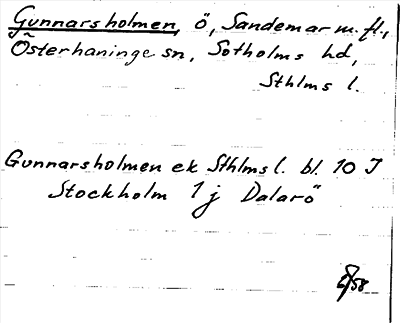 Gunnarsholmen, ö, Sandemar m. fl.,
Österhaninge sn, Sotholms hd,
Sthlms l.
Gunnarsholmen ek Sthlms l. bl. 10 J
Stockholm 1 j Dalarö